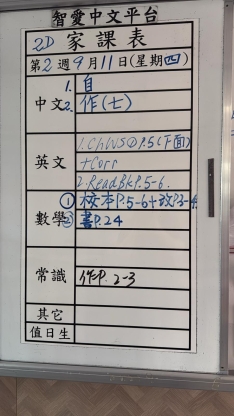 智愛中文平台
2D 家課表
第2週9月11日(星期四)
中文
1. 自
2. 作(七)
英文
1. ChWS② P.5(下面)
+Corr
2. Read Bk P.5-6.
數學
① 校本P.5-6+改P.3-4
② 書P.24
常識
作P. 2-3
其它
值日生